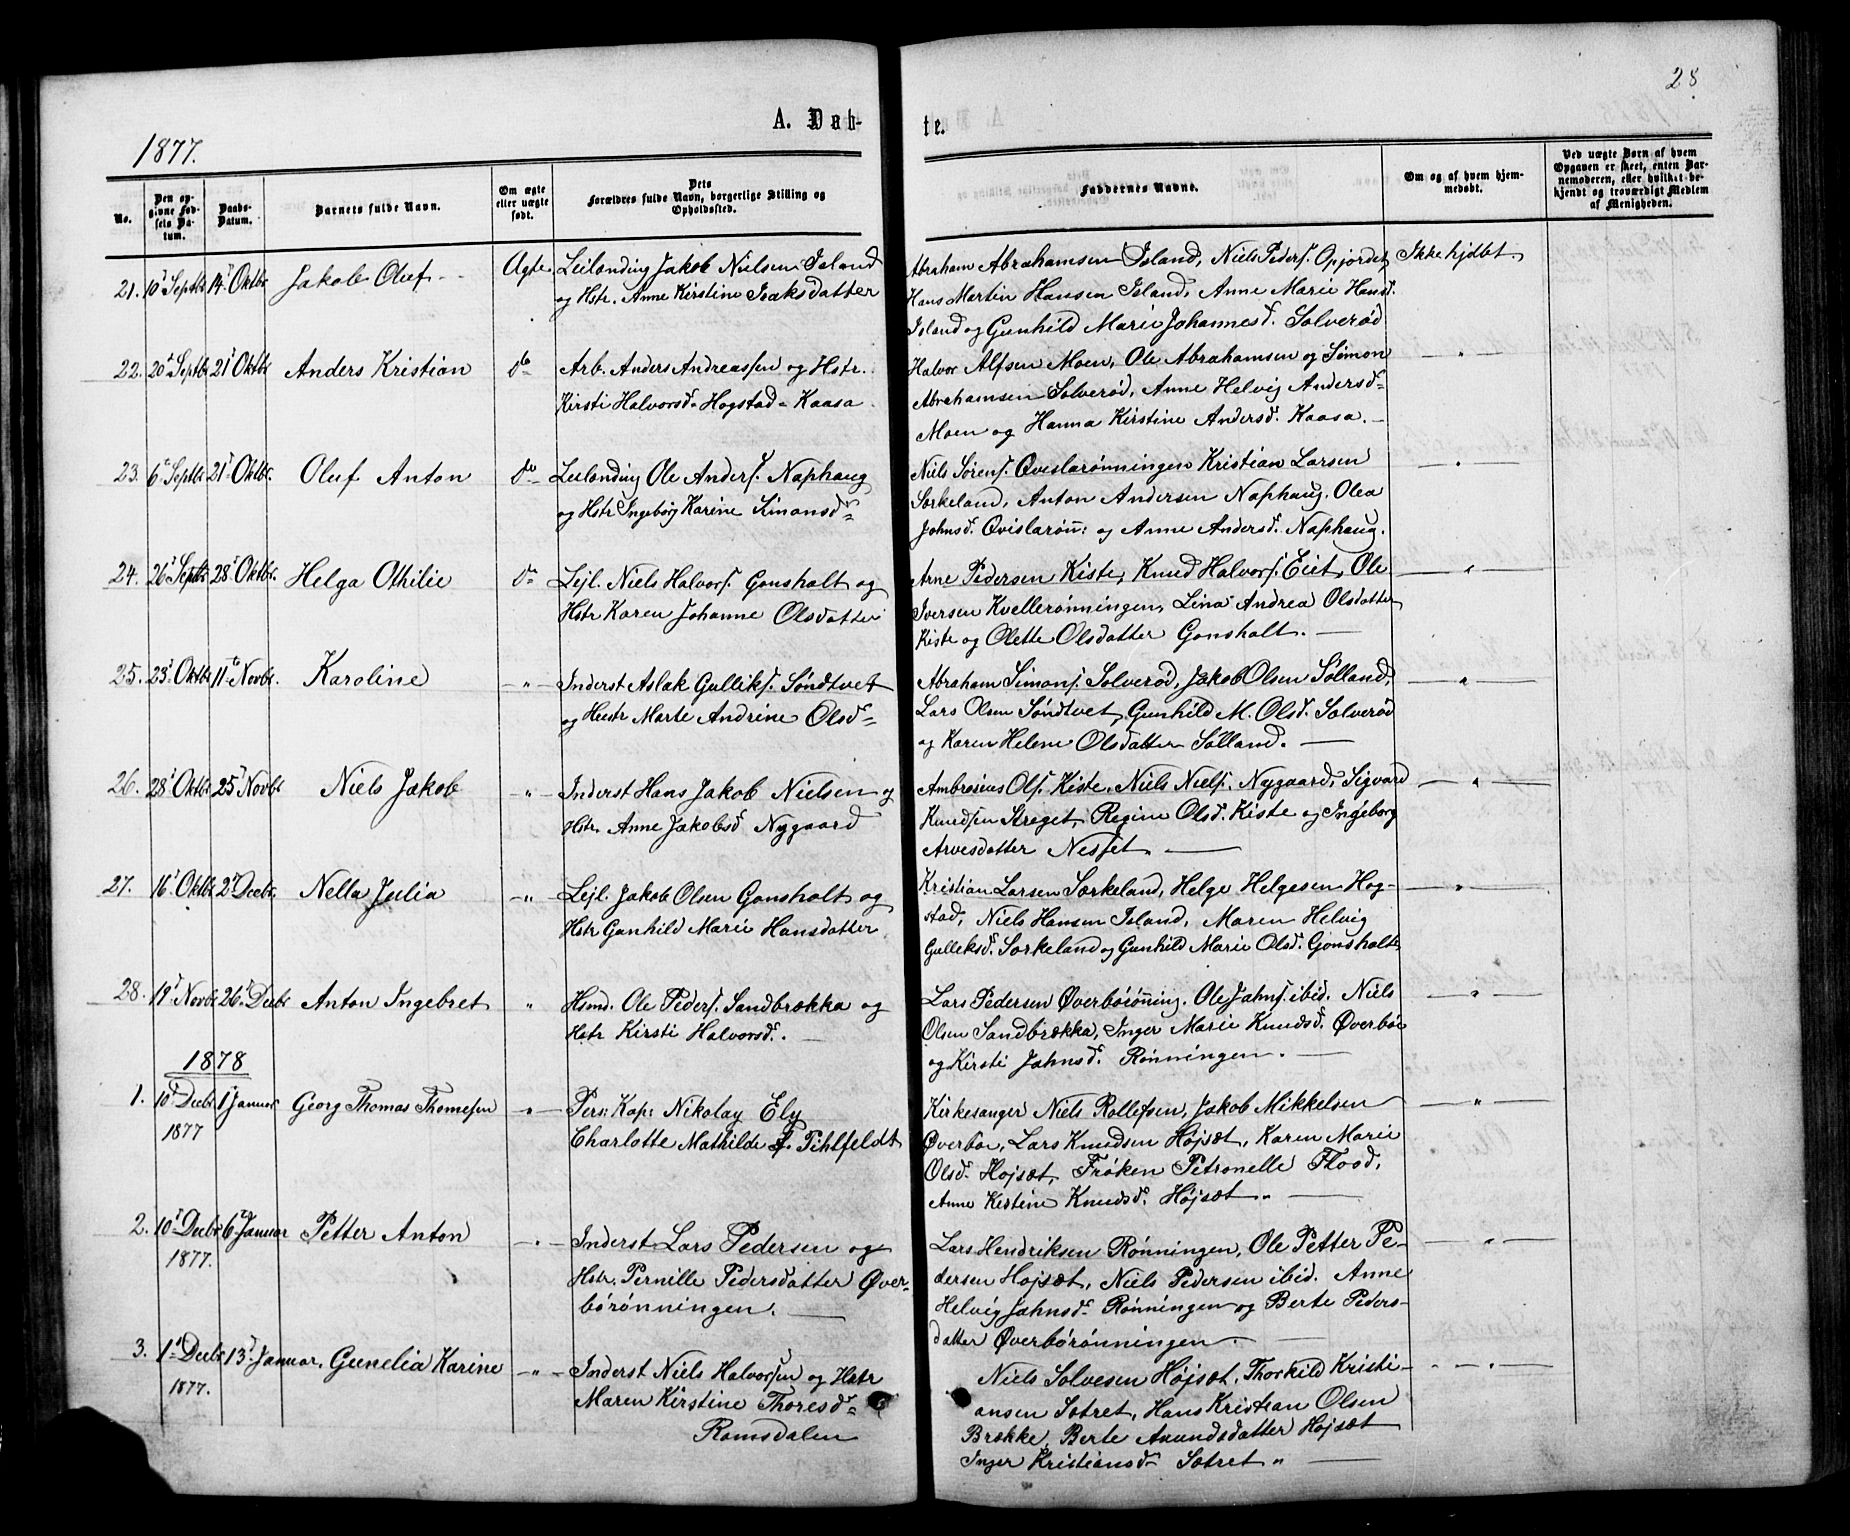 28
A. Døb-
te.
1877.
No.
Den op-
givne Fød-
sels Da-
tum.
Daabs-
Datum.
Barnets fulde Navn.
Om ægte
eller uægte
født.
Dets
Forældres fulde Navn, borgerlige Stilling og
Opholdssted.
Faddernes Navne.
Om og af hvem hjem-
medøbt.
Ved uægte Børn af hvem
Opgaven er skeet, enten Bar-
nemoderen, eller hvilket be-
kjendt og troværdigt Medlem
af Menigheden.
21. 10 Septbr 14 Oktbr Jakob Oluf Ægte Leilending Jakob Nielsen Island
og Hstr. Anne Kirstine Isaksdatter
Abraham Abrahamsen Island, Niels Peders. Opjordet,
Hans Martin Hansen Island, Anne Marie Hansd.
Island og Gunhild Marie Johannesd. Solverød
Ikke hjdøbt
22. 20 Septbr 21 Oktbr Anders Kristian do Arb. Anders Andreassen og Hstr.
Kirsti Halvorsd. Hogstad - Kaasa
Halvor Alfsen Moen, Ole Abrahamsen og Simon
Abrahamsen Solverød, Anne Helvig Andersd.
Moen og Hanna Kirstine Andersd. Kaasa. -
23. 6 Septbr 21 Oktbr. Oluf Anton do Leilending Ole Anders. Naphaug
og Hstr Ingebørg Karine Simonsd.
Niels Sørens. Qvislarønningen Kristian Larsen
Sørkeland, Anton Andersen Naphaug. Olea
Johnsd. Qvislarøn: og Anne Andersd. Naphaug.
24. 26 Septbr 28 Oktbr. Helga Othilie do Lejl. Niels Halvors. Gonsholt og
Hstr Karen Johanne Olsdatter
Arne Pedersen Kiste, Knud Halvors. Eiet, Ole
Iversen Kvellerønningen, Lina Andrea Olsdatter
Kiste og Olette Olsdatter Gonsholt. -
25. 23 Oktbr 11 Novbr. Karoline - " - Inderst Aslak Gulliks. Søndtvet
og Hustr Marte Andrine Olsd.
Abraham Simons. Solverød, Jakob Olsen Sølland,
Lars Olsen Søndtvet, Gunhild M. Olsd. Solverød
og Karen Helene Olsdatter Sølland. -
26. 28 Oktbr 25 Novbr Niels Jakob - " - Inderst Hans Jakob Nielsen og
Hstr. Anne Jakobsd Nygaard
Ambrosius Ols. Kiste, Niels Niels. Nygaard, Sigvard
Knudsen Streget, Regine Olsd. Kiste og Ingeborg
Arvesdatter Nesset. -
27. 16 Oktbr 2 Decbr. Nella Julia - " - Lejl. Jakob Olsen Gonsholt og
Hstr Gunhild Marie Hansdatter.
Kristian Larsen Sørkeland, Helge Helgesen Hog-
stad, Niels Hansen Island, Maren Helvig
Gulleksd. Sørkeland og Gunhild Marie Olsd. Gonsholt
28. 19 Novbr 26 Decbr Anton Ingebret " Hsmd. Ole Peders. Sandbrækka og
Hstr Kirsti Halvorsd. -
Lars Pedersen Øverbørønning. Ole Jahns. ibid. Niels
Olsen Sandbrækka, Inger Marie Knudsd. Øverbøe
og Kirsti Jahnsd. Rønningen. -
1878
1. 10 Decbr 1 Januar Georg Thomas Thomesen - " - Pers: Kap: Nikolay Ely
1877
Charlotte Mathilde f. Pihlfeldt
Kirkesanger Niels Rollefsen, Jakob Mikkelsen
Øverbøe, Lars Knudsen Højsæt, Karen Marie
Olsd. Højsæt, Frøken Petronelle Flood,
Anne Kistine Knudsd. Højsæt -
2. 10 Decbr 6 Januar Petter Anton - " - Inderst Lars Pedersen og
1877.
Hstr. Pernille Pedersdatter Øver-
børønningen. -
Lars Hendriksen Rønningen, Ole Petter Pe-
dersen Højsæt, Niels Pedersen ibid. Anne
Helvig Jahnsd. Rønningen og Berte Peders-
datter Øverbørønningen. -
3. 1 Decbr 13 Januar. Gunelia Karine - " - Inderst Niels Halvorsen og Hstr
1877.
Maren Kirstine Thoresd.
Romsdalen
Niels Solvesen Højsæt, Thorkild Kristi-
ansen Sotret, Hans Kristian Olsen
Brække, Berte Amundsdatter Højsæt
Inger Kristiansd. Sotret " -